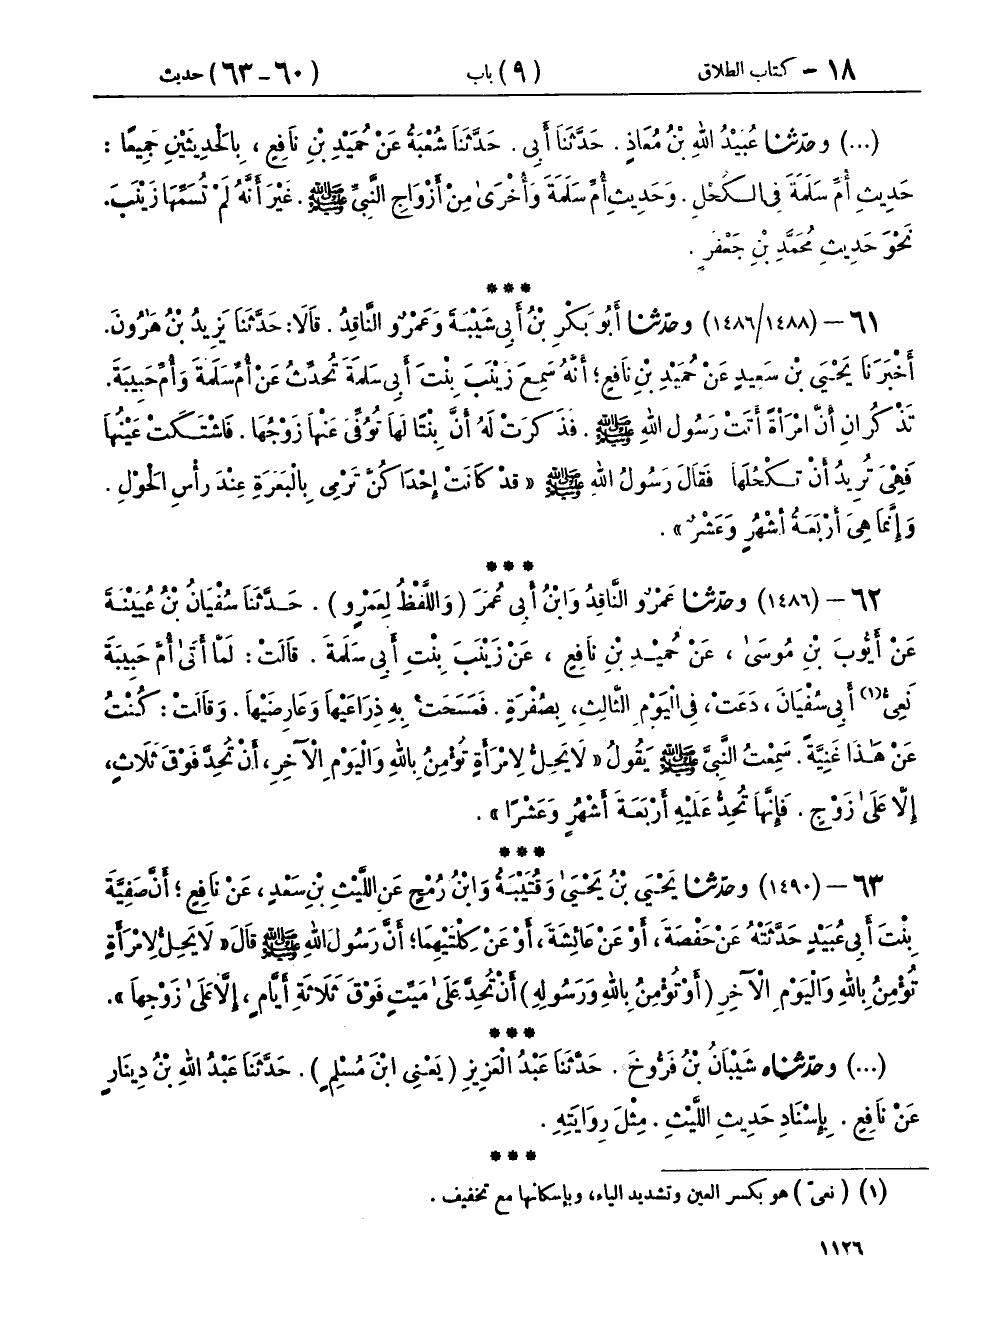 ١٨ - كتاب الطلاق (٩) باب (٦٠ - ٦٣) حديث
(...) وحدثنا عُبَيْدُ اللهِ بْنُ مُعَاذٍ . حَدَّثَنَا أَبِي . حَدَّثَنَا شُعْبَةُ عَنْ حُمَيْدِ بْنِ نَافِعٍ ، بِالْحَدِيثَيْنِ جَمِيعًا :
حَدِيثِ أُمِّ سَلَمَةَ فِي الْكُحْلِ . وَحَدِيثِ أُمِّ سَلَمَةَ وَأُخْرَىٰ مِنْ أَزْوَاجِ النَّبِيِّ ﷺ . غَيْرَ أَنَّهُ لَمْ تُسَمِّهَا زَيْنَبَ .
نَحْوَ حَدِيثِ مُحَمَّدِ بْنِ جَعْفَرٍ .
***
٦١ - (١٤٨٦/١٤٨٨) وحدثنا أَبُو بَكْرِ بْنُ أَبِي شَيْبَةَ وَعَمْرٌو النَّاقِدُ . قَالَا: حَدَّثَنَا يَزِيدُ بْنُ هَٰرُونَ .
أَخْبَرَنَا يَحْيَىٰ بْنُ سَعِيدٍ عَنْ حُمَيْدِ بْنِ نَافِعٍ؛ أَنَّهُ سَمِعَ زَيْنَبَ بِنْتَ أَبِي سَلَمَةَ تُحَدِّثُ عَنْ أُمِّ سَلَمَةَ وَأُمِّ حَبِيبَةَ .
تَذْكُرَانِ أَنَّ امْرَأَةً أَتَتْ رَسُولَ اللهِ ﷺ . فَذَكَرَتْ لَهُ أَنَّ بِنْتًا لَهَا تُوُفِّيَ عَنْهَا زَوْجُهَا . فَاشْتَكَتْ عَيْنُهَا
فَهِيَ تُرِيدُ أَنْ تَكْحُلَهَا فَقَالَ رَسُولُ اللهِ ﷺ « قَدْ كَانَتْ إِحْدَاكُنَّ تَرْمِي بِالْبَعَرَةِ عِنْدَ رَأْسِ الْحَوْلِ .
وَإِنَّمَا هِيَ أَرْبَعَةُ أَشْهُرٍ وَعَشْرٌ » .
***
٦٢ - (١٤٨٦) وحدثنا عَمْرٌو النَّاقِدُ وَابْنُ أَبِي عُمَرَ ( وَاللَّفْظُ لِعَمْرٍو ) . حَدَّثَنَا سُفْيَانُ بْنُ عُيَيْنَةَ
عَنْ أَيُّوبَ بْنِ مُوسَىٰ ، عَنْ حُمَيْدِ بْنِ نَافِعٍ ، عَنْ زَيْنَبَ بِنْتِ أَبِي سَلَمَةَ . قَالَتْ : لَمَّا أَتَىٰ أُمَّ حَبِيبَةَ
نَعِيُّ(١) أَبِي سُفْيَانَ ، دَعَتْ، فِي الْيَوْمِ الثَّالِثِ، بِصُفْرَةٍ . فَمَسَحَتْ بِهِ ذِرَاعَيْهَا وَعَارِضَيْهَا . وَقَالَتْ : كُنْتُ
عَنْ هَٰذَا غَنِيَّةً . سَمِعْتُ النَّبِيَّ ﷺ يَقُولُ « لَا يَحِلُّ لِامْرَأَةٍ تُؤْمِنُ بِاللهِ وَالْيَوْمِ الْآخِرِ، أَنْ تُحِدَّ فَوْقَ ثَلَاثٍ،
إِلَّا عَلَىٰ زَوْجٍ . فَإِنَّهَا تُحِدُّ عَلَيْهِ أَرْبَعَةَ أَشْهُرٍ وَعَشْرًا » .
***
٦٣ - (١٤٩٠) وحدثنا يَحْيَىٰ بْنُ يَحْيَىٰ وَقُتَيْبَةُ وَابْنُ رُمْحٍ عَنِ اللَّيْثِ بْنِ سَعْدٍ، عَنْ نَافِعٍ ؛ أَنَّ صَفِيَّةَ
بِنْتَ أَبِي عُبَيْدٍ حَدَّثَتْهُ عَنْ حَفْصَةَ، أَوْ عَنْ عَائِشَةَ، أَوْ عَنْ كِلْتَيْهِمَا؛ أَنَّ رَسُولَ اللهِ ﷺ قَالَ « لَا يَحِلُّ لِامْرَأَةٍ
تُؤْمِنُ بِاللهِ وَالْيَوْمِ الْآخِرِ ( أَوْ تُؤْمِنُ بِاللهِ وَرَسُولِهِ ) أَنْ تُحِدَّ عَلَىٰ مَيِّتٍ فَوْقَ ثَلَاثَةِ أَيَّامٍ ، إِلَّا عَلَىٰ زَوْجِهَا ».
***
(...) وحدثناه شَيْبَانُ بْنُ فَرُّوخَ . حَدَّثَنَا عَبْدُ الْعَزِيزِ ( يَعْنِي ابْنَ مُسْلِمٍ ) . حَدَّثَنَا عَبْدُ اللهِ بْنُ دِينَارٍ
عَنْ نَافِعٍ . بِإِسْنَادِ حَدِيثِ اللَّيْثِ . مِثْلَ رِوَايَتِهِ .
***
(١) ( نعيّ ) هو بكسر العين وتشديد الياء، وبإسكانها مع تخفيف .
١١٢٦